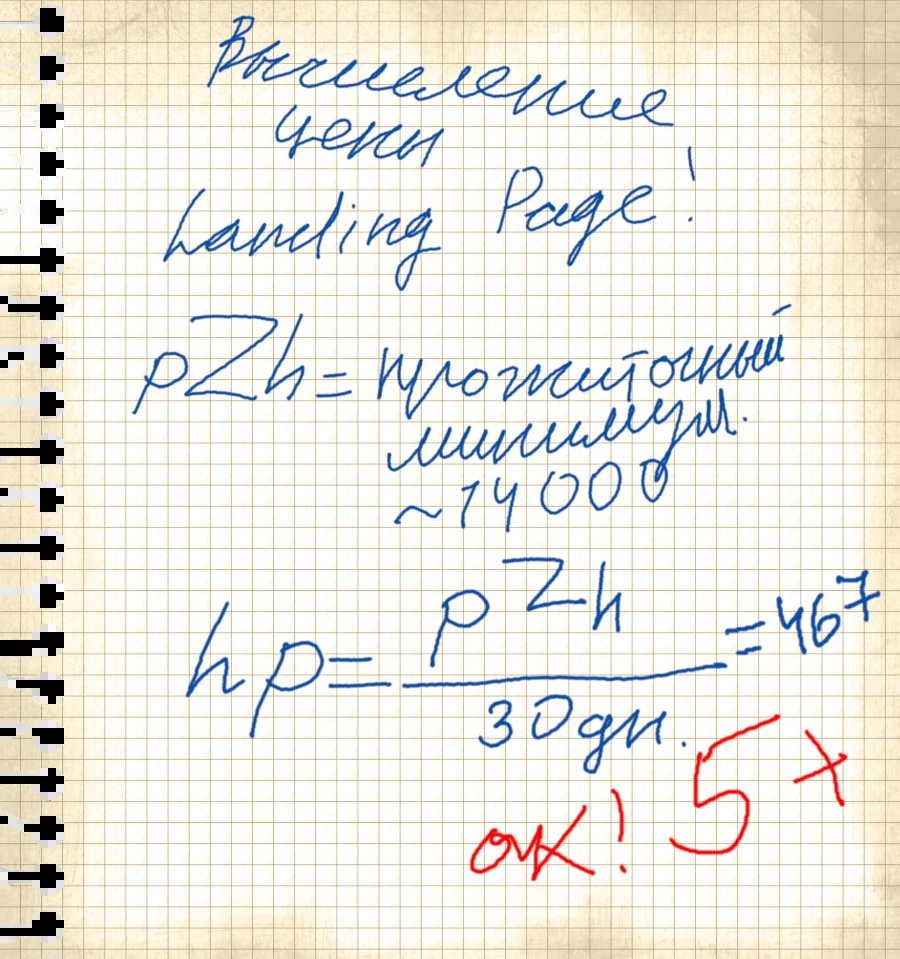 Вычисление
цены
Landing Page!
pZh = прожиточный
минимум.
~14000
hp = pZh = 467
30дн.
ок! 5+